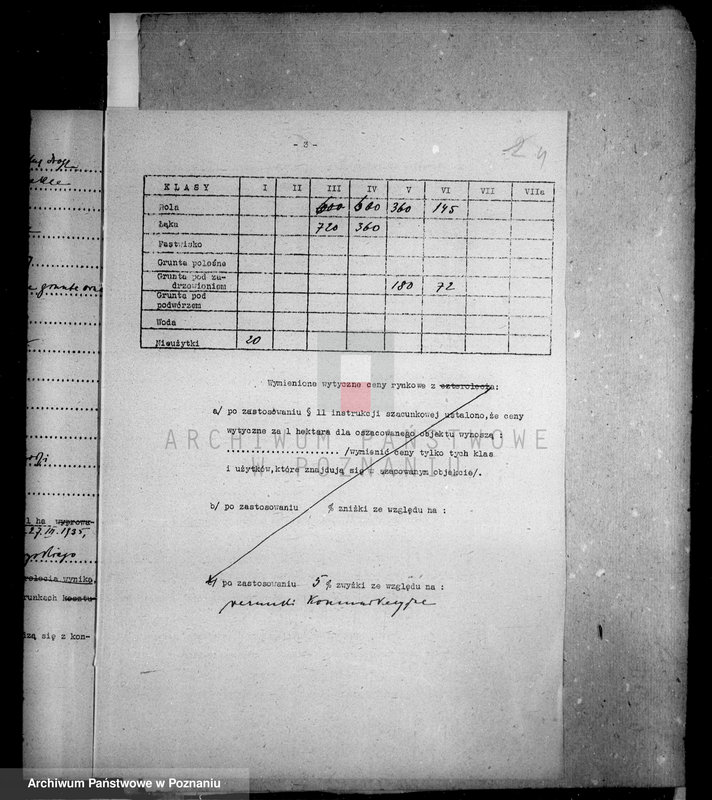 - 3 -
24
KLASY I II III IV V VI VII VIIa
Rola 600 600 360 145
Łąka 720 360
Pastwisko
Grunta poleśne
Grunta pod za-
drzewieniem 180 72
Grunta pod
podwórzem
Woda
Nieużytki 20
Wymienione wytyczne ceny rynkowe z czterolecia:
a/ po zastosowaniu § 11 instrukcji szacunkowej ustalono, że ceny
wytyczne za 1 hektara dla oszacowanego objektu wynoszą :
............................ /wymienić ceny tylko tych klas
i użytków, które znajdują się w szacowanym objekcie/.
b/ po zastosowaniu % zniżki ze względu na :
c/ po zastosowaniu 5 % zwyżki ze względu na :
warunki komunikacyjne
ARCHIWUM PAŃSTWOWE
W POZNANIU
1 ha wyprowa-
27. III. 1935,
rolecia wynika,
runkach kosztu-
zą się z kon-
Archiwum Państwowe w Poznaniu